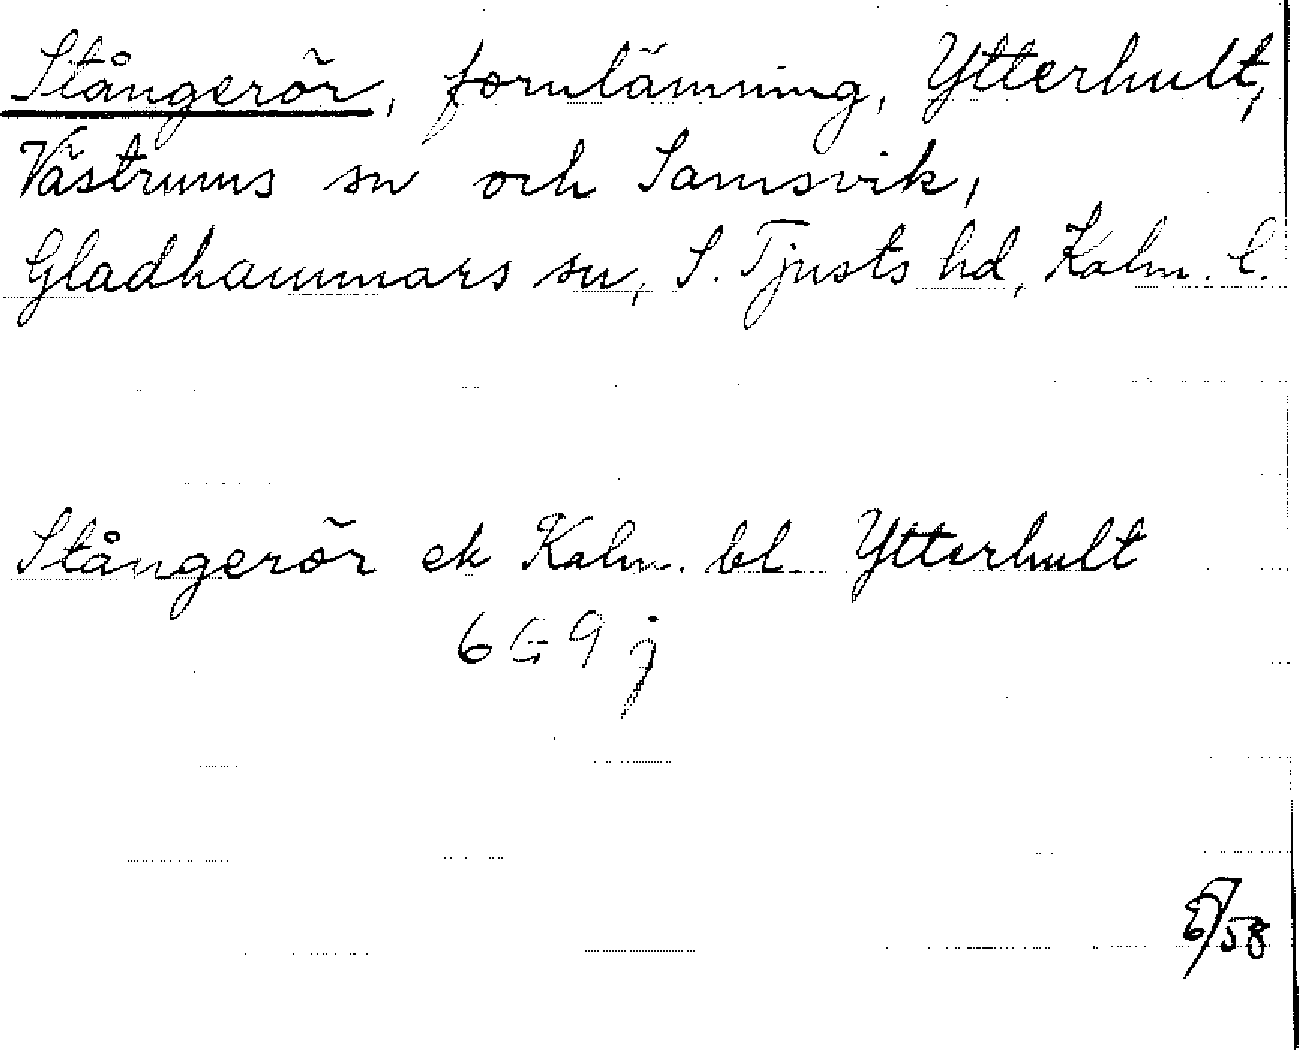 Stångerör, fornlämning, Ytterhult,
Västrums sn och Samsvik,
Gladhammars sn, S. Tjusts hd, Kalm. l.
Stångerör ek Kalm. bl Ytterhult
6G9j